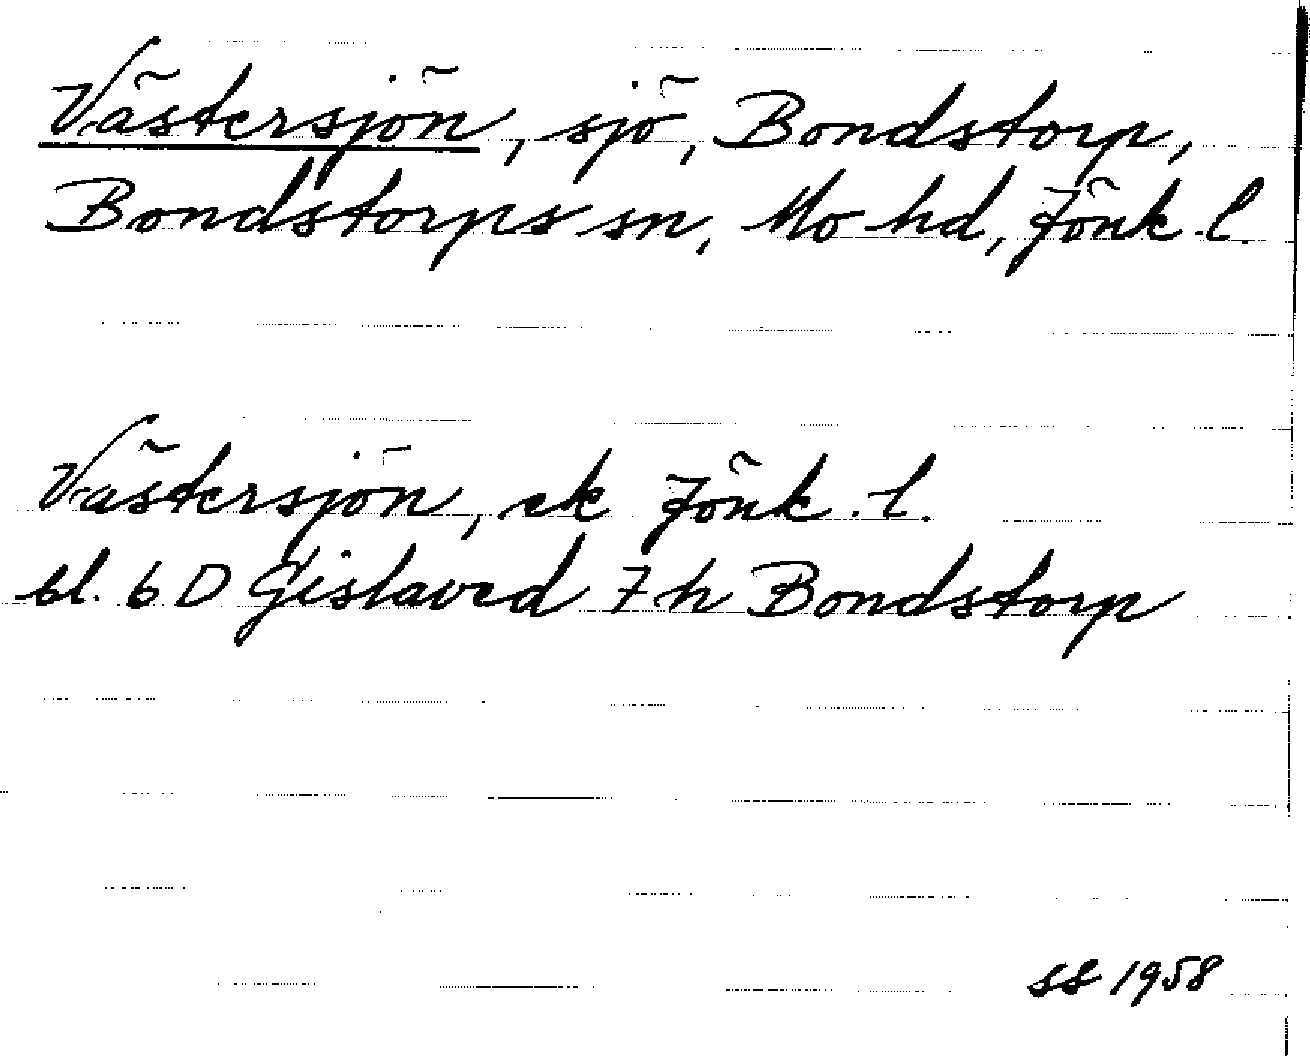 Västersjön, sjö, Bondstorp,
Bondstorps sn, Mo hd, Jönk. l.
Västersjön, ek Jönk. l.
bl. 6 D Gislaved 7 h Bondstorp
SS 1958